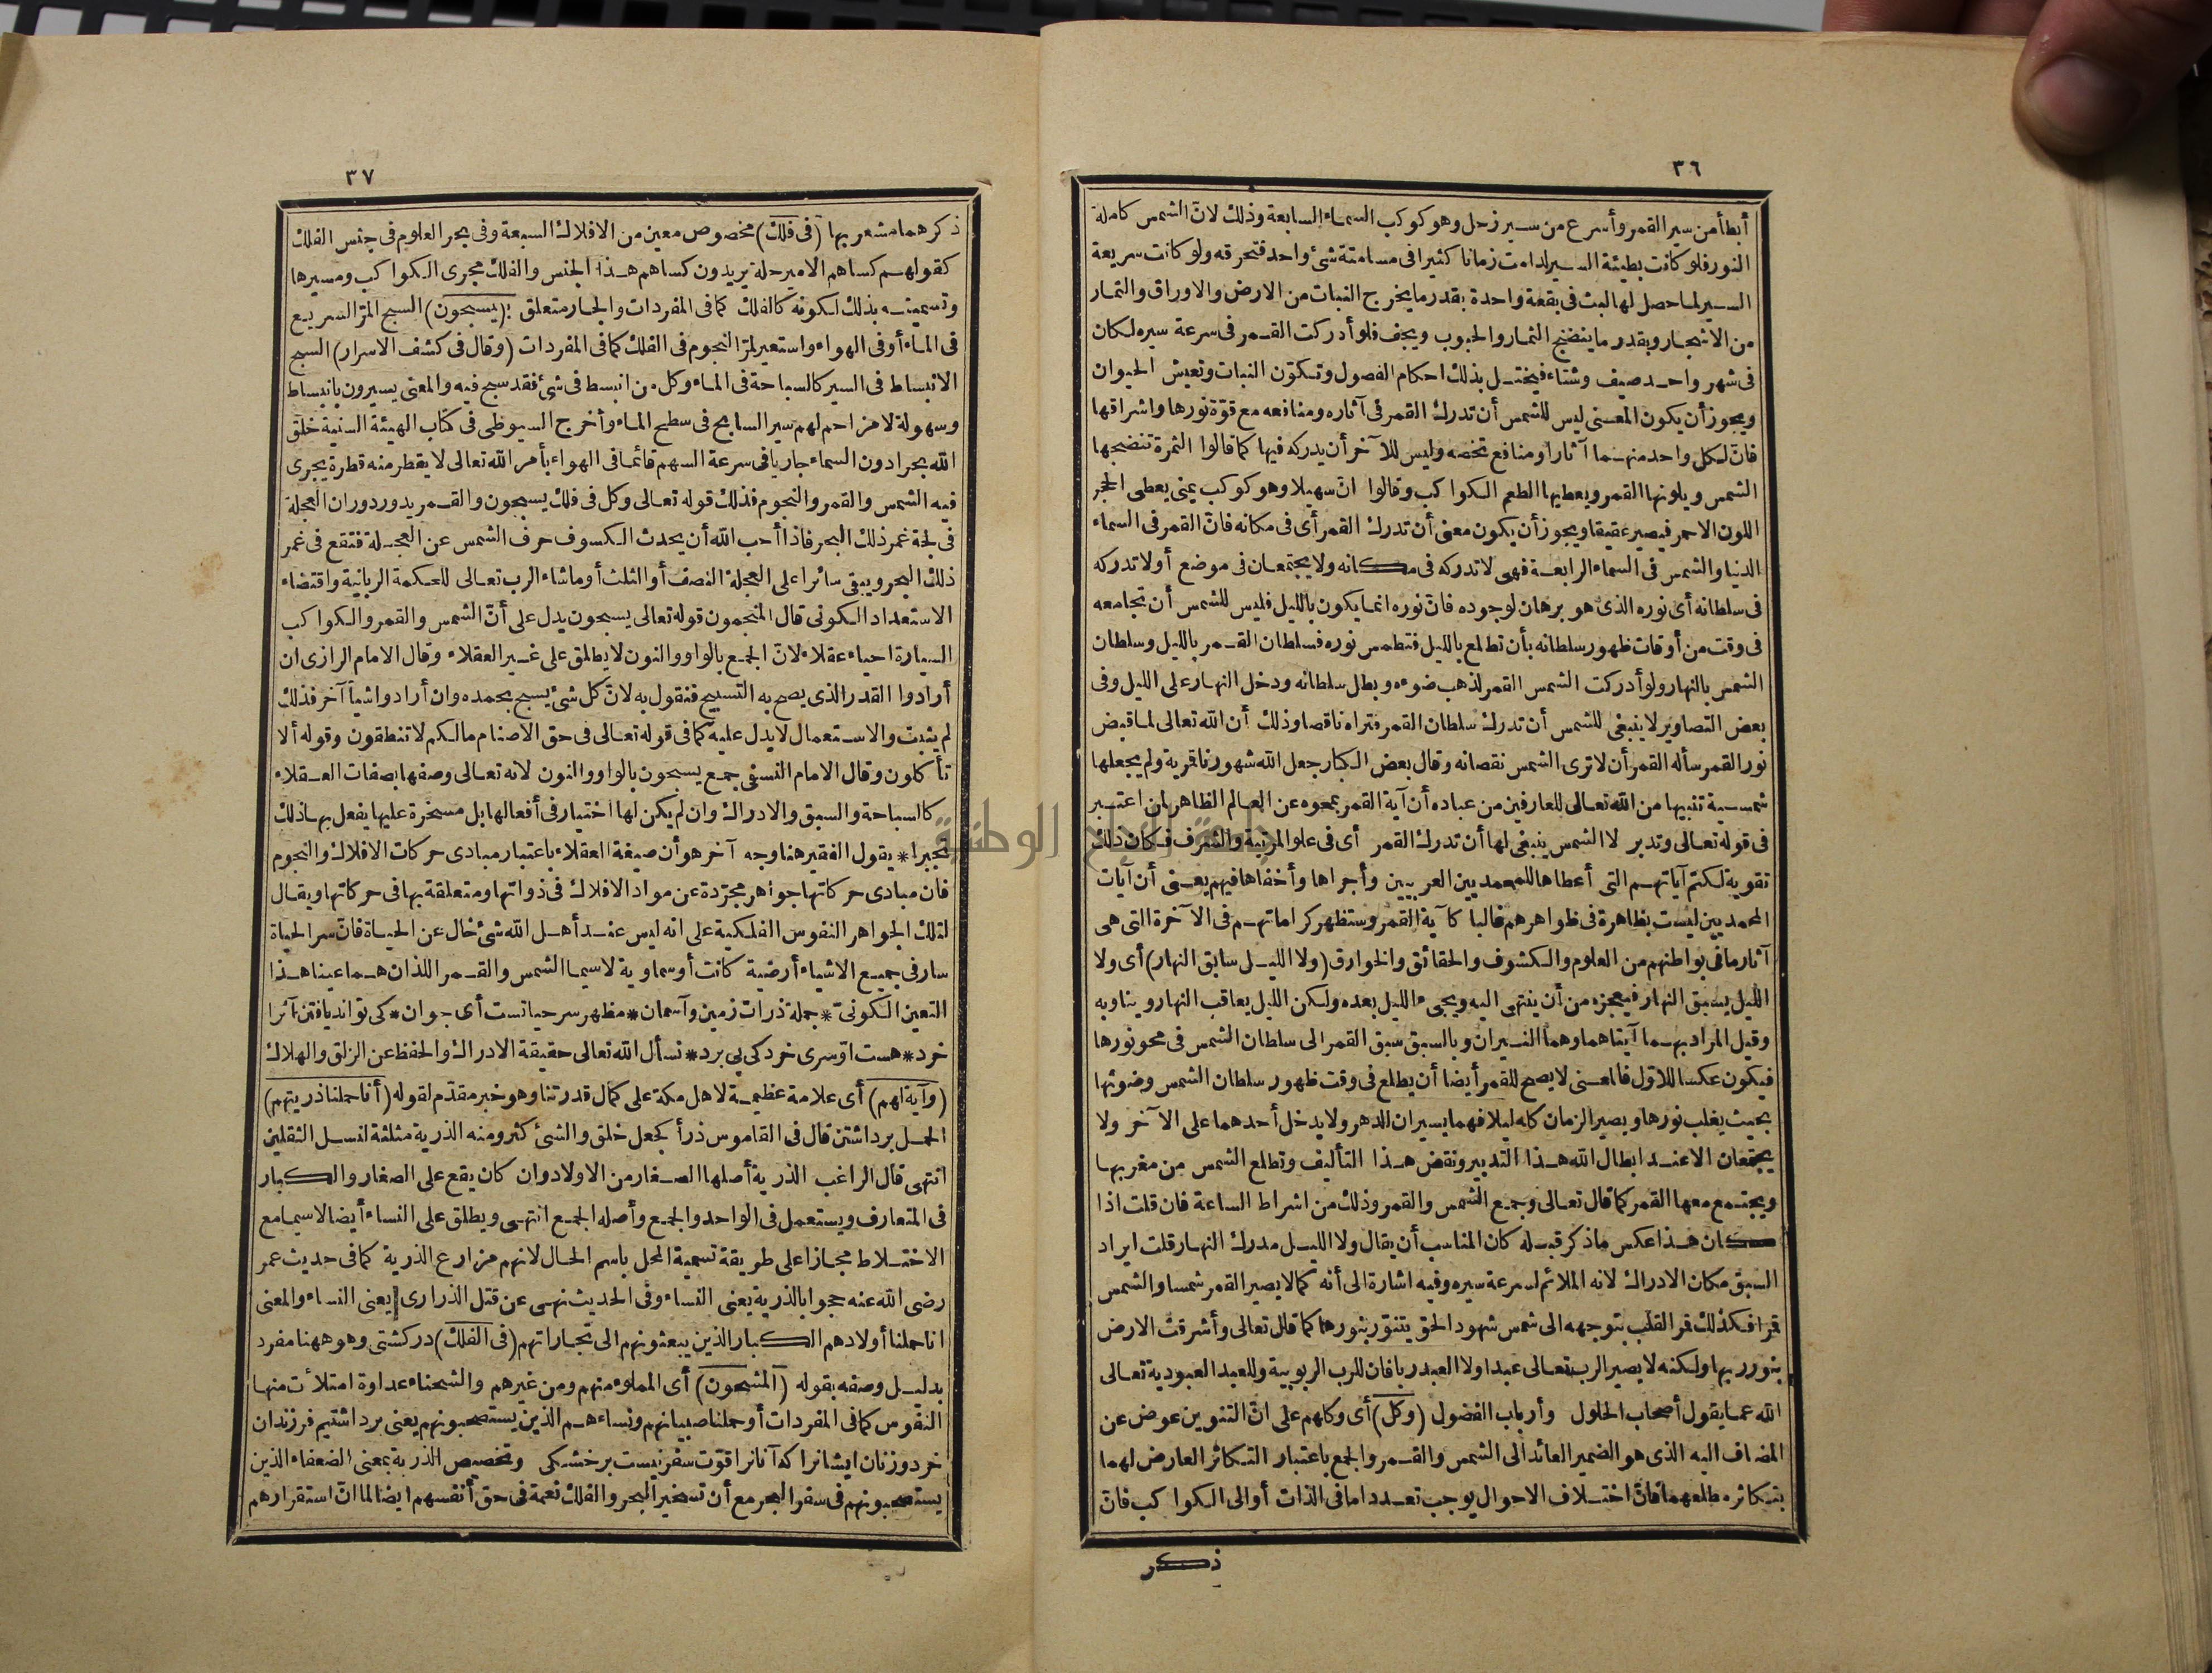 ٣٦
أبطأ من سير القمر وأسرع من سير زحل وهو كوكب السماء السابعة وذلك لانّ الشمس كاملة
النور فلو كانت بطيئة السير لدامت زمانا كثيرا فى مسامتة شئ واحد فتحرقه ولو كانت سريعة
السير لما حصل لها لبث فى بقعة واحدة بقدر ما يخرج النبات من الارض والاوراق والثمار
من الاشجار وبقدر ما ينضج الثمار والحبوب ويجف فلو أدركت القمر فى سرعة سيره لكان
فى شهر واحد صيف وشتاء فيختل بذلك احكام الفصول وتكوّن النبات وتعيش الحيوان
ويجوز أن يكون المعنى ليس للشمس أن تدرك القمر فى آثاره ومنافعه مع قوّة نورها واشراقها
فانّ لكل واحد منهما آثارا ومنافع تخصه وليس للآخر أن يدركه فيها كما قالوا الثمرة تنضجها
الشمس ويلونها القمر ويعطيها الطعم الكواكب وقالوا انّ سهيلا وهو كوكب يمنى يعطى الحجر
اللون الاحمر فيصير عقيقا ويجوز أن يكون معنى أن تدرك القمر أى فى مكانه فانّ القمر فى السماء
الدنيا والشمس فى السماء الرابعة فهى لا تدركه فى مكانه ولا يجتمعان فى موضع أولا تدركه
فى سلطانه أى نوره الذى هو برهان لوجوده فانّ نوره انما يكون بالليل فليس للشمس أن تجامعه
فى وقت من أوقات ظهور سلطانه بأن تطلع بالليل فتطمس نوره فسلطان القمر بالليل وسلطان
الشمس بالنهار ولو أدركت الشمس القمر لذهب ضوءه وبطل سلطانه ودخل النهار على الليل وفى
بعض التصاوير لا ينبغى للشمس أن تدرك سلطان القمر فتراه ناقصا وذلك أن الله تعالى لما قبض
نور القمر سأله القمر أن لا ترى الشمس نقصانه وقال بعض الكبار جعل الله شهورنا قمرية ولم يجعلها
شمسية تنبيها من الله تعالى للعارفين من عباده أن آية القمر ممحوه عن العالم الظاهر لمن اعتبر
فى قوله تعالى وتدبر لا الشمس ينبغى لها أن تدرك القمر أى فى علو المرتبة والشرف فكان ذلك
تقوية لكتم آياتهم التى أعطاها للمحمديين العربيين وأجراها وأخفاها فيهم يعنى أن آيات
المحمديين ليست بظاهرة فى ظواهرهم غالبا كآية القمر وستظهر كراماتهم فى الآخرة التى هى
آثار ما فى بواطنهم من العلوم والكشوف والحقائق والخوارق (ولا الليل سابق النهار) أى ولا
الليل يسبق النهار فيعجزه من أن ينتهى اليه ويجىء الليل بعده ولكن الليل يعاقب النهار ويناوبه
وقيل المراد بهما آيتاهما وهما النيران وبالسبق سبق القمر الى سلطان الشمس فى محو نورها
فيكون عكسا للاوّل فالمعنى لا يصح للقمر أيضا أن يطلع فى وقت ظهور سلطان الشمس وضوئها
بحيث يغلب نورها ويصير الزمان كله ليلا فهما يسيران الدهر ولا يدخل أحدهما على الآخر ولا
يجتمعان الا عند ابطال الله هذا التدبير ونقض هذا التأليف وتطلع الشمس من مغربها
ويجتمع معها القمر كما قال تعالى وجمع الشمس والقمر وذلك من اشراط الساعة فان قلت اذا
كان هذا عكس ما ذكر قبله كان المناسب أن يقال ولا الليل مدرك النهار قلت ايراد
السبق مكان الادراك لانه الملائم لسرعة سيره وفيه اشارة الى أنه كما لا يصير القمر شمسا والشمس
قمرا فكذلك قمر القلب بتوجهه الى شمس شهود الحق يتنوّر بنورها كما قال تعالى وأشرقت الارض
بنور ربها ولكنه لا يصير الرب تعالى عبدا ولا العبد ربا فان للرب الربوبية وللعبد العبودية تعالى
الله عما يقول أصحاب الحلول وأرباب الفضول (وكل) أى وكلهم على انّ التنوين عوض عن
المضاف اليه الذى هو الضمير العائد الى الشمس والقمر والجمع باعتبار التكاثر العارض لهما
بتكاثر مطالعهما فانّ اختلاف الاحوال يوجب تعددا ما فى الذات أو الى الكواكب فانّ
ذكر
٣٧
ذكرهما مشعر بها (فى فلك) مخصوص معين من الافلاك السبعة وفى بحر العلوم فى جنس الفلك
كقولهم كساهم الامير حلة يريدون كساهم هذا الجنس والفلك مجرى الكواكب ومسيرها
وتسميته بذلك لكونه كالفلك كما فى المفردات والجار متعلق بـ(يسبحون) السبح المرّ السريع
فى الماء أو فى الهواء واستعير لمرّ النجوم فى الفلك كما فى المفردات (وقال فى كشف الاسرار) السبح
الانبساط فى السير كالسباحة فى الماء وكل من انبسط فى شئ فقد سبح فيه والمعنى يسيرون بانبساط
وسهولة لا مزاحم لهم سير السابح فى سطح الماء وأخرج السيوطى فى كتاب الهيئة السنية خلق
الله بحرا دون السماء جاريا فى سرعة السهم قائما فى الهواء بأمر الله تعالى لا يقطر منه قطرة يجرى
فيه الشمس والقمر والنجوم فذلك قوله تعالى وكل فى فلك يسبحون والقمر يدور دوران العجلة
فى لجة غمر ذلك البحر فاذا أحب الله أن يحدث الكسوف حرف الشمس عن العجلة فتقع فى غمر
ذلك البحر ويبقى سائرا على العجلة النصف أو الثلث أو ما شاء الرب تعالى للحكمة الربانية واقتضاء
الاستعداد الكونى قال المنجمون قوله تعالى يسبحون يدل على أنّ الشمس والقمر والكواكب
السيارة احياء عقلاء لانّ الجمع بالواو والنون لا يطلق على غير العقلاء وقال الامام الرازى ان
أرادوا القدر الذى يصح به التسبيح فنقول به لانّ كل شئ يسبح بحمده وان أرادوا شيأ آخر فذلك
لم يثبت والاستعمال لا يدل عليه كما فى قوله تعالى فى حق الاصنام مالكم لا تنطقون وقوله ألا
تأكلون وقال الامام النسفى جمع يسبحون بالواو والنون لانه تعالى وصفها بصفات العقلاء
كالسباحة والسبق والادراك وان لم يكن لها اختيار فى أفعالها بل مسخرة عليها يفعل بها ذلك
تجبرا * يقول الفقير هنا وجه آخر هو أن صيغة العقلاء باعتبار مبادى حركات الافلاك والنجوم
فان مبادى حركاتها جواهر مجرّدة عن مواد الافلاك فى ذواتها ومتعلقة بها فى حركاتها ويقال
لتلك الجواهر النفوس الفلكية على انه ليس عند أهل الله شئ خال عن الحياة فانّ سر الحياة
سار فى جميع الاشياء أرضية كانت أو سماوية لا سيما الشمس والقمر اللذان هما عينا هذا
التعين الكونىّ * جملهٔ ذرات زمين وآسمان * مظهر سر حياتست أى جوان * كى تواند يافتن آنرا
خرد * هست او سرى خرد كى پى برد * نسأل الله تعالى حقيقة الادراك والحفظ عن الزلق والهلاك
(وآية لهم) أى علامة عظيمة لاهل مكة على كمال قدرتنا وهو خبر مقدّم لقوله (أنا حملنا ذريتهم)
الحمل برداشتن قال فى القاموس ذرأ كجعل خلق والشئ كثر ومنه الذرية مثلثة لنسل الثقلين
انتهى قال الراغب الذرية أصلها الصغار من الاولاد وان كان يقع على الصغار والكبار
فى المتعارف ويستعمل فى الواحد والجمع وأصله الجمع انتهى ويطلق على النساء أيضا لا سيما مع
الاختلاط مجازا على طريقة تسمية المحل باسم الحال لانهم مزارع الذرية كما فى حديث عمر
رضى الله عنه حجوا بالذرية يعنى النساء وفى الحديث نهى عن قتل الذرارى يعنى النساء والمعنى
انا حملنا أولادهم الكبار الذين يبعثونهم الى تجاراتهم (فى الفلك) در كشتى وهو ههنا مفرد
بدليل وصفه بقوله (المشحون) أى المملوء منهم ومن غيرهم والشحناء عداوة امتلأت منها
النفوس كما فى المفردات أو حملنا صبيانهم ونساءهم الذين يستصحبونهم يعنى برداشتيم فرزندان
خرد وزنان ايشانرا كه آنانرا قوّت سفر نيست بر خشكى وتخصيص الذرية بمعنى الضعفاء الذين
يستصحبونهم فى سفر البحر مع أن تسخير البحر والفلك نعمة فى حق أنفسهم ايضا لما انّ استقرارهم